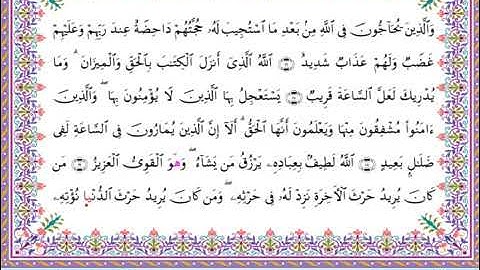 وَٱلَّذِينَ يُحَآجُّونَ فِى ٱللَّهِ مِنۢ بَعْدِ مَا ٱسْتُجِيبَ لَهُۥ حُجَّتُهُمْ دَاحِضَةٌ عِندَ رَبِّهِمْ وَعَلَيْهِمْ
غَضَبٌ وَلَهُمْ عَذَابٌ شَدِيدٌ ۝ ٱللَّهُ ٱلَّذِىٓ أَنزَلَ ٱلْكِتَـٰبَ بِٱلْحَقِّ وَٱلْمِيزَانَ ۗ وَمَا
يُدْرِيكَ لَعَلَّ ٱلسَّاعَةَ قَرِيبٌ ۝ يَسْتَعْجِلُ بِهَا ٱلَّذِينَ لَا يُؤْمِنُونَ بِهَا ۖ وَٱلَّذِينَ
ءَامَنُوا۟ مُشْفِقُونَ مِنْهَا وَيَعْلَمُونَ أَنَّهَا ٱلْحَقُّ ۗ أَلَآ إِنَّ ٱلَّذِينَ يُمَارُونَ فِى ٱلسَّاعَةِ لَفِى
ضَلَـٰلٍۭ بَعِيدٍ ۝ ٱللَّهُ لَطِيفٌۢ بِعِبَادِهِۦ يَرْزُقُ مَن يَشَآءُ ۖ وَهُوَ ٱلْقَوِىُّ ٱلْعَزِيزُ ۝ مَن
كَانَ يُرِيدُ حَرْثَ ٱلْـَٔاخِرَةِ نَزِدْ لَهُۥ فِى حَرْثِهِۦ ۖ وَمَن كَانَ يُرِيدُ حَرْثَ ٱلدُّنْيَا نُؤْتِهِۦ